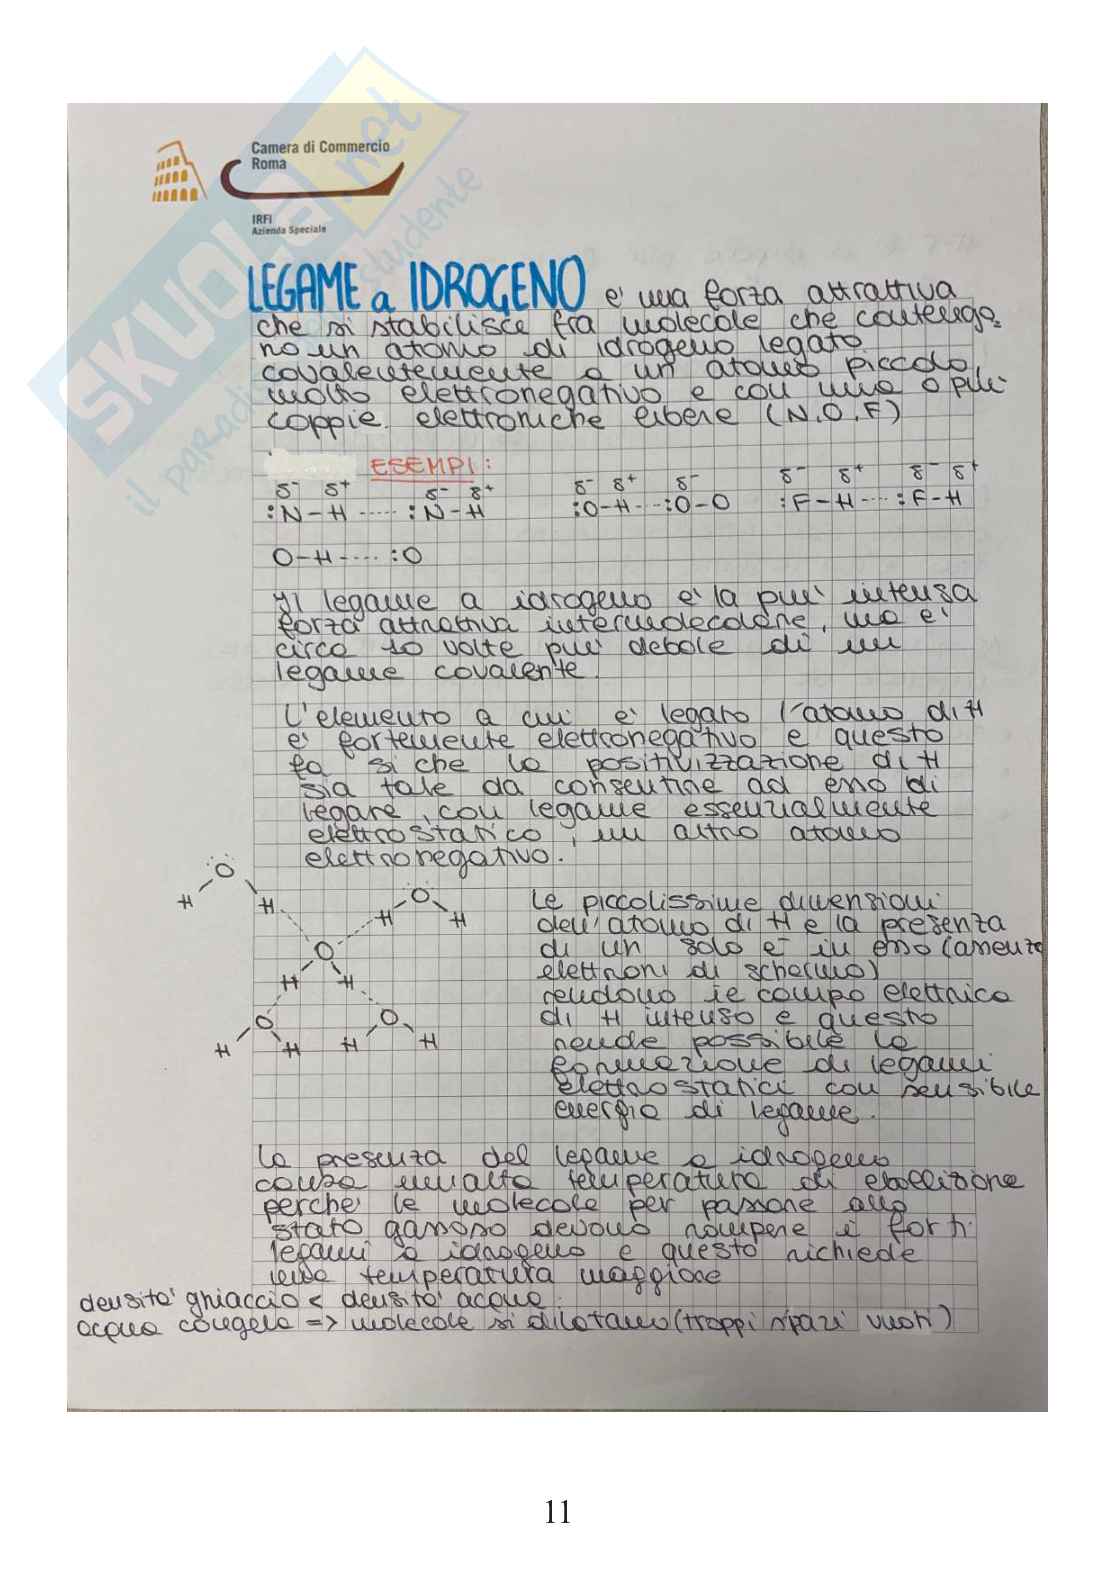 SKUOLA.net
il paradiso dello studente
Camera di Commercio
Roma
IRFI
Azienda Speciale
LEGAME a IDROGENO e' una forza attrattiva
che si stabilisce fra molecole che contengo=
no un atomo di idrogeno legato
covalentemente a un atomo piccolo,
molto elettronegativo e con una o piu'
coppie elettroniche libere (N,O,F)
ESEMPI:
δ⁻ δ⁺ δ⁻ δ⁺ δ⁻ δ⁺ δ⁻ δ⁻ δ⁺ δ⁻ δ⁺
:N-H ..... :N-H :O-H---:O-O :F-H ---- :F-H
O-H.....:O
Il legame a idrogeno e' la piu' intensa
forza attrattiva intermolecolare, ma e'
circa 10 volte piu' debole di un
legame covalente.
L'elemento a cui e' legato l'atomo di H
e' fortemente elettronegativo e questo
fa si che la positivizzazione di H
sia tale da consentire ad esso di
legare, con legame essenzialmente
elettrostatico, un altro atomo
elettronegativo.
O
H H H O H
O
H H
O O
H H H H
Le piccolissime dimensioni
dell'atomo di H e la presenza
di un solo e⁻ in esso (assenza
elettroni di schermo)
rendono il campo elettrico
di H intenso e questo
rende possibile la
formazione di legami
elettrostatici con sensibile
energia di legame.
La presenza del legame a idrogeno
causa un'alta temperatura di ebollizione
perche' le molecole per passare allo
stato gassoso devono rompere i forti
legami a idrogeno e questo richiede
una temperatura maggiore
densita' ghiaccio < densita' acqua.
acqua congela => molecole si dilatano (troppi spazi vuoti)
11